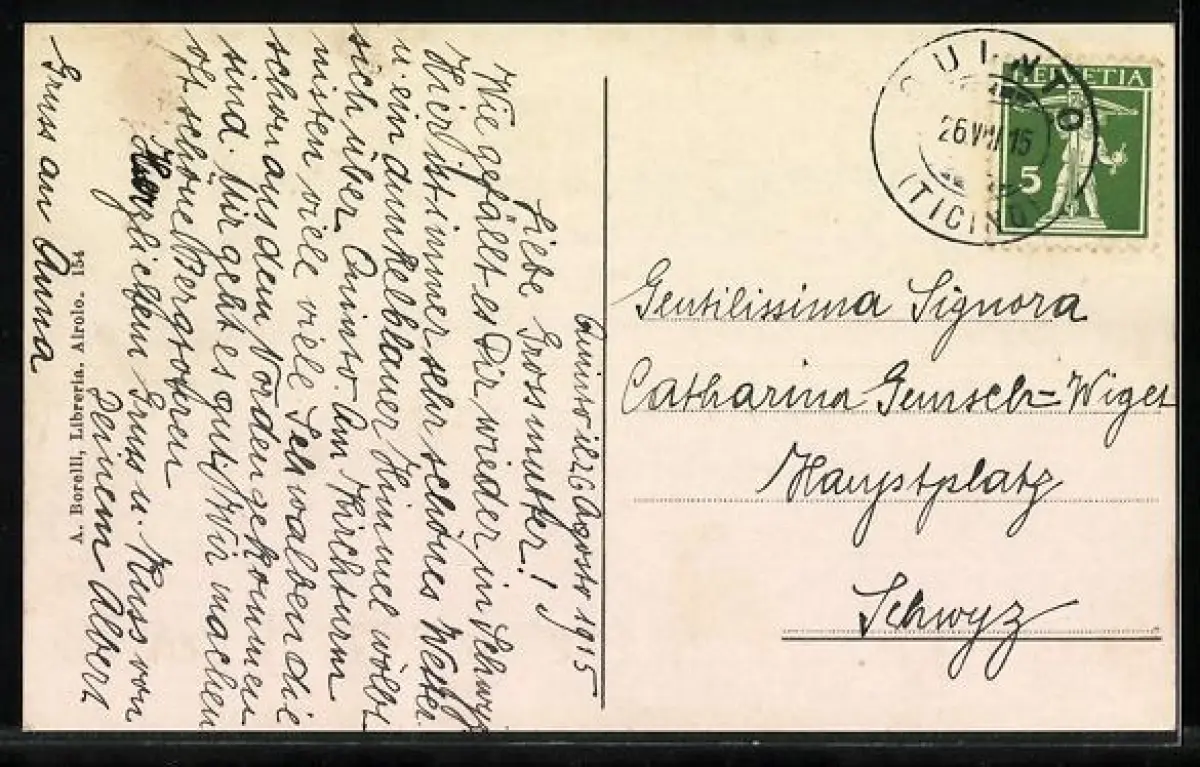 Quinto il 26 Agosto 1915
Liebe Grosmutter!
Wie gefällt es Dir wieder in Schwyz
Hier ist immer sehr schönes Wetter
u. ein dunkelblauer Himmel wölbt
sich über Quinto. Am Kirchturm
nisten viele viele Schwalben die
schon aus dem Norden gekommen
sind. Mir geht es gut. Wir machen
oft schöne Bergtouren
Herzlichem Gruss u. Kuss von
Deinem Albert
Gruss an Anna
A. Borelli, Libreria. Airolo. 154
QUINTO
26.VIII.15
(TICINO)
HELVETIA
5
Gentilissima Signora
Catharina Gemsch-Wiget
Hauptplatz
Schwyz